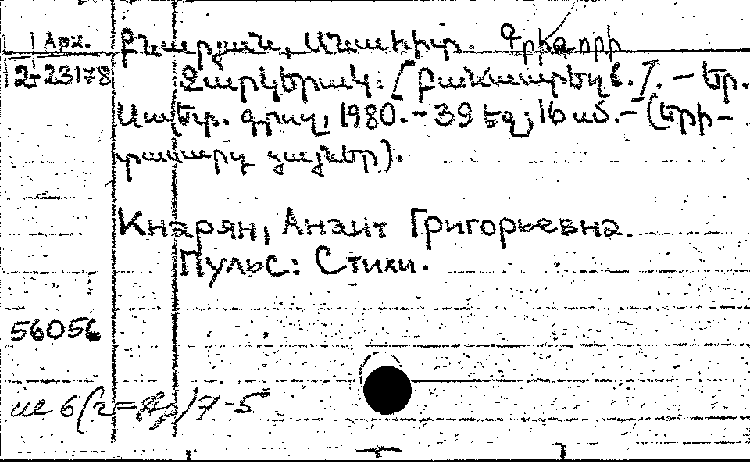 1 Арх. Քնարյան, Անահիտ Գրիգորի
12-23178 Զարկերակ: [Բանաստեղծ.]. – Եր.
Սովետ. գրող, 1980. – 39 էջ; 16 սմ. – (Երի-
տասարդ ձայներ).
Кнарян, Анаит Григорьевна.
Пульс: Стихи.
56056